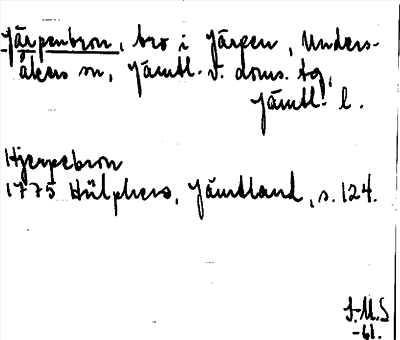 Järpenbron, bro i Järpen, Unders-
åkers sn, Jämtl. v. doms. tg,
Jämtl. l.
Hjerpebron
1775 Hülphers, Jämtland, s. 124.
S.M.S
-61.